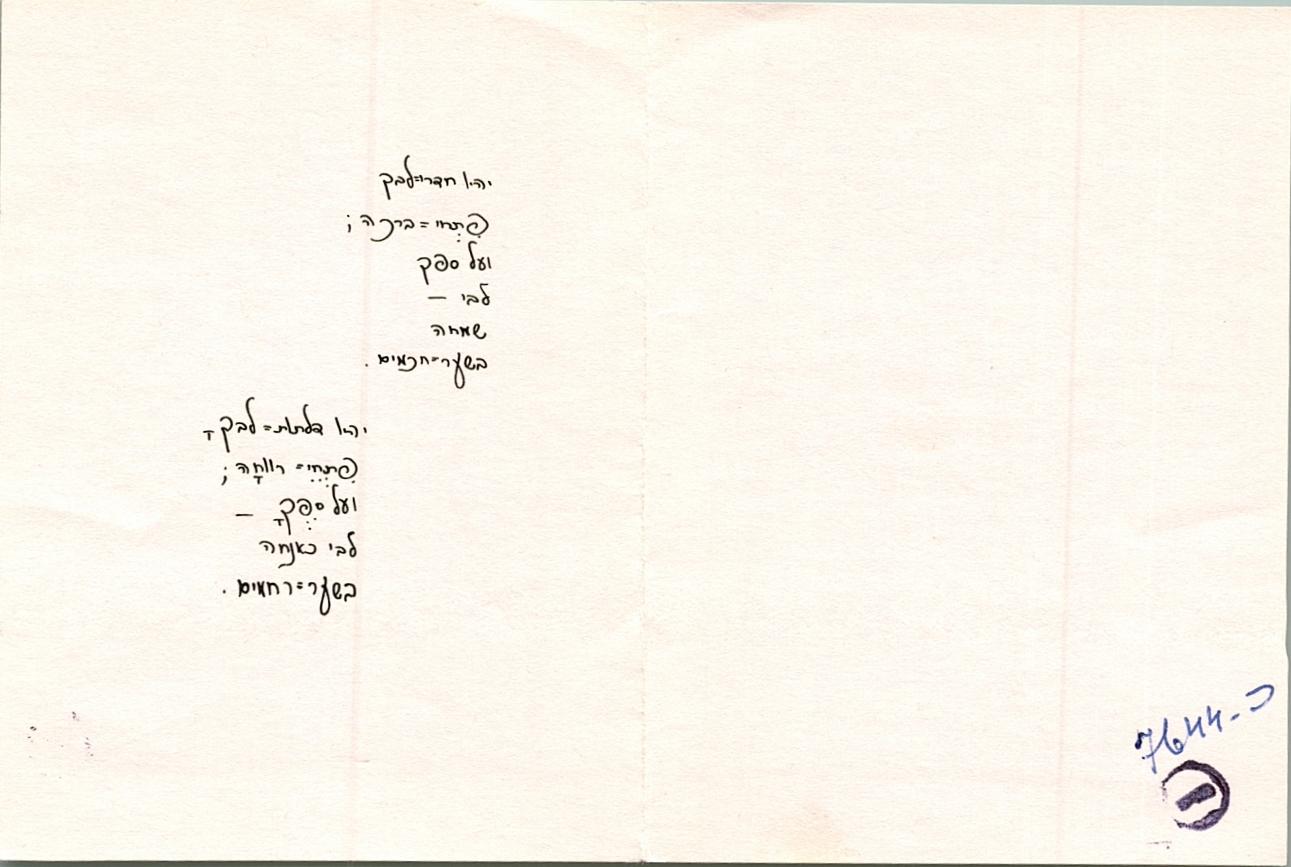 יהיו חדרי=לבך
פִתְחי=ברכה;
ועל ספך
לבי –
שמחה
בשער=חכמים.
יהיו דלתות=לבךָ
פִתְחֵי= רווחָה;
ועל סִפְּךָ –
לבי כאנחה
בשער=רחמים.
כ-7644